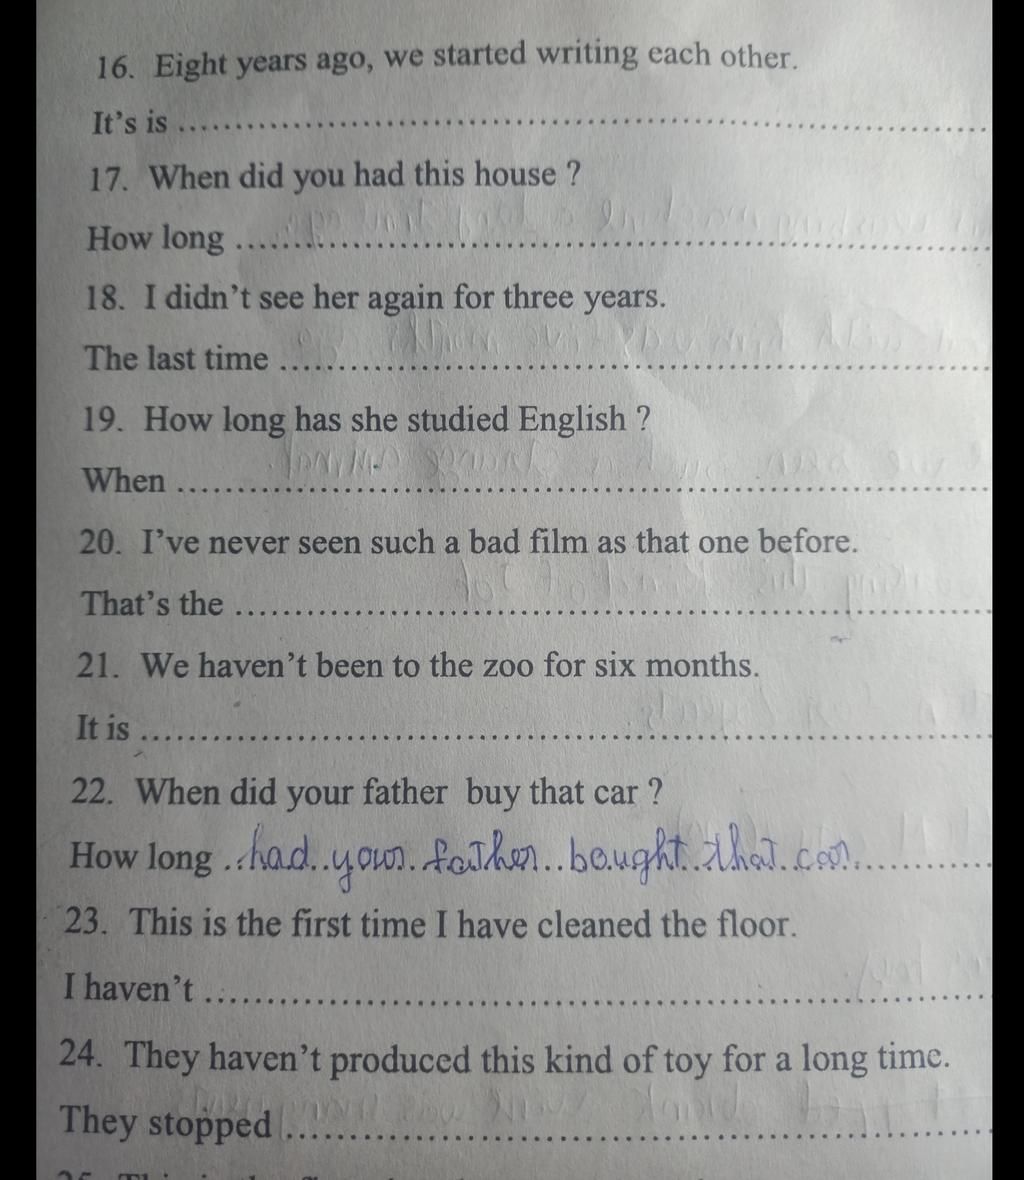 16. Eight years ago, we started writing each other.
It's is ....................
17. When did you had this house ?
How long ....................
18. I didn't see her again for three years.
The last time ....................
19. How long has she studied English ?
When ....................
20. I've never seen such a bad film as that one before.
That's the ....................
21. We haven't been to the zoo for six months.
It is ....................
22. When did your father buy that car ?
How long had your father bought that car
23. This is the first time I have cleaned the floor.
I haven't ....................
24. They haven't produced this kind of toy for a long time.
They stopped ....................